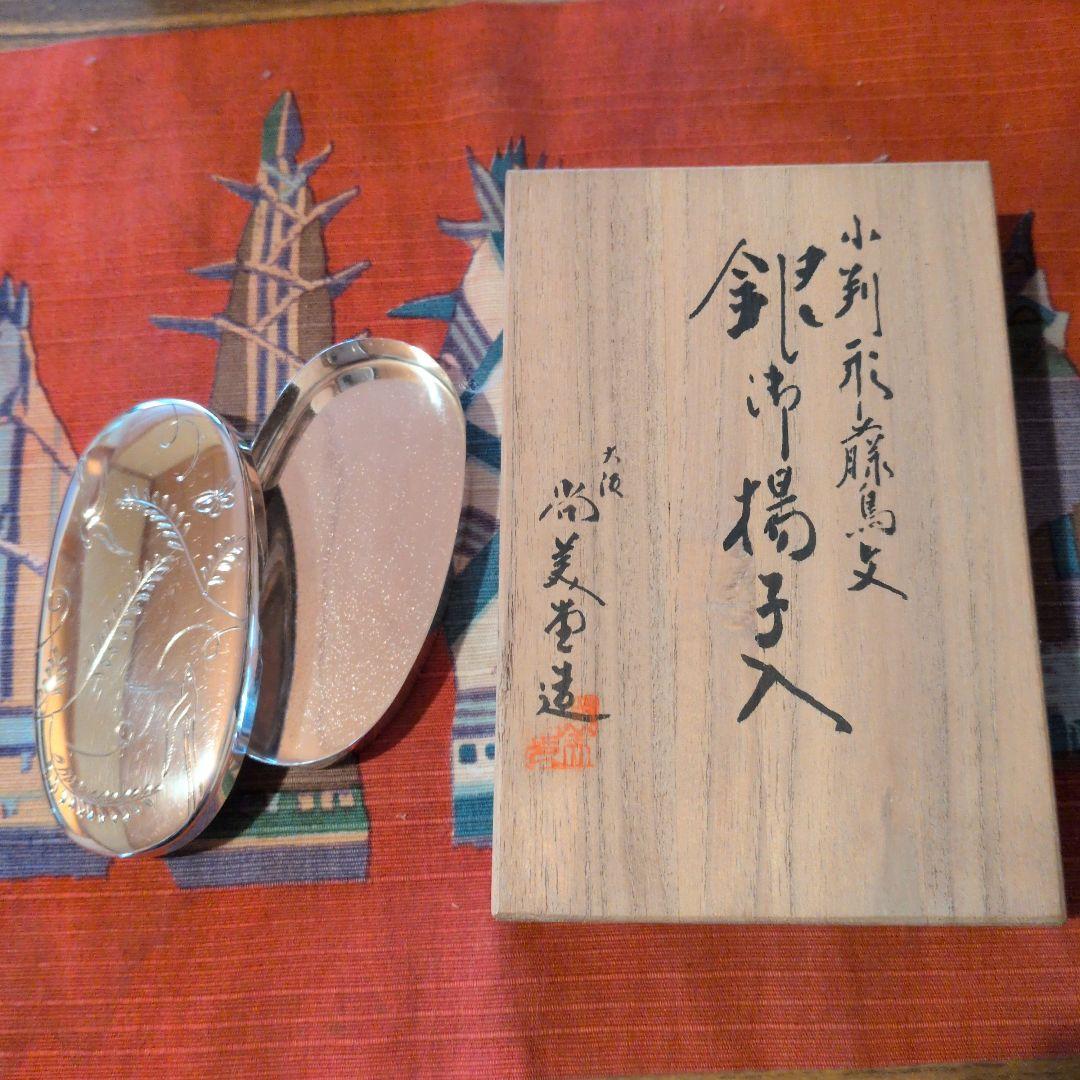 小判形藤鳥文
銀御揚子入
大阪
尚美堂造